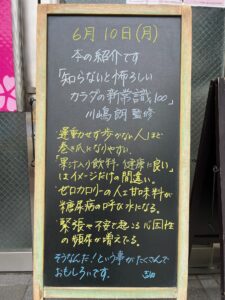 6月10日(月)
本の紹介です
「知らないと怖ろしい
カラダの新常識100」
川嶋 朗 監修
運動かせず歩かない人ほど
巻き爪になりやすい。
「果汁入り飲料=健康に良い」
はイメージだけの間違い。
ゼロカロリーの人工甘味料が
糖尿病の呼び水になる。
緊張や不安で起こる心因性
の頻尿が増えてる。
そうなんだ!という事がたくさんで
おもしろいです。